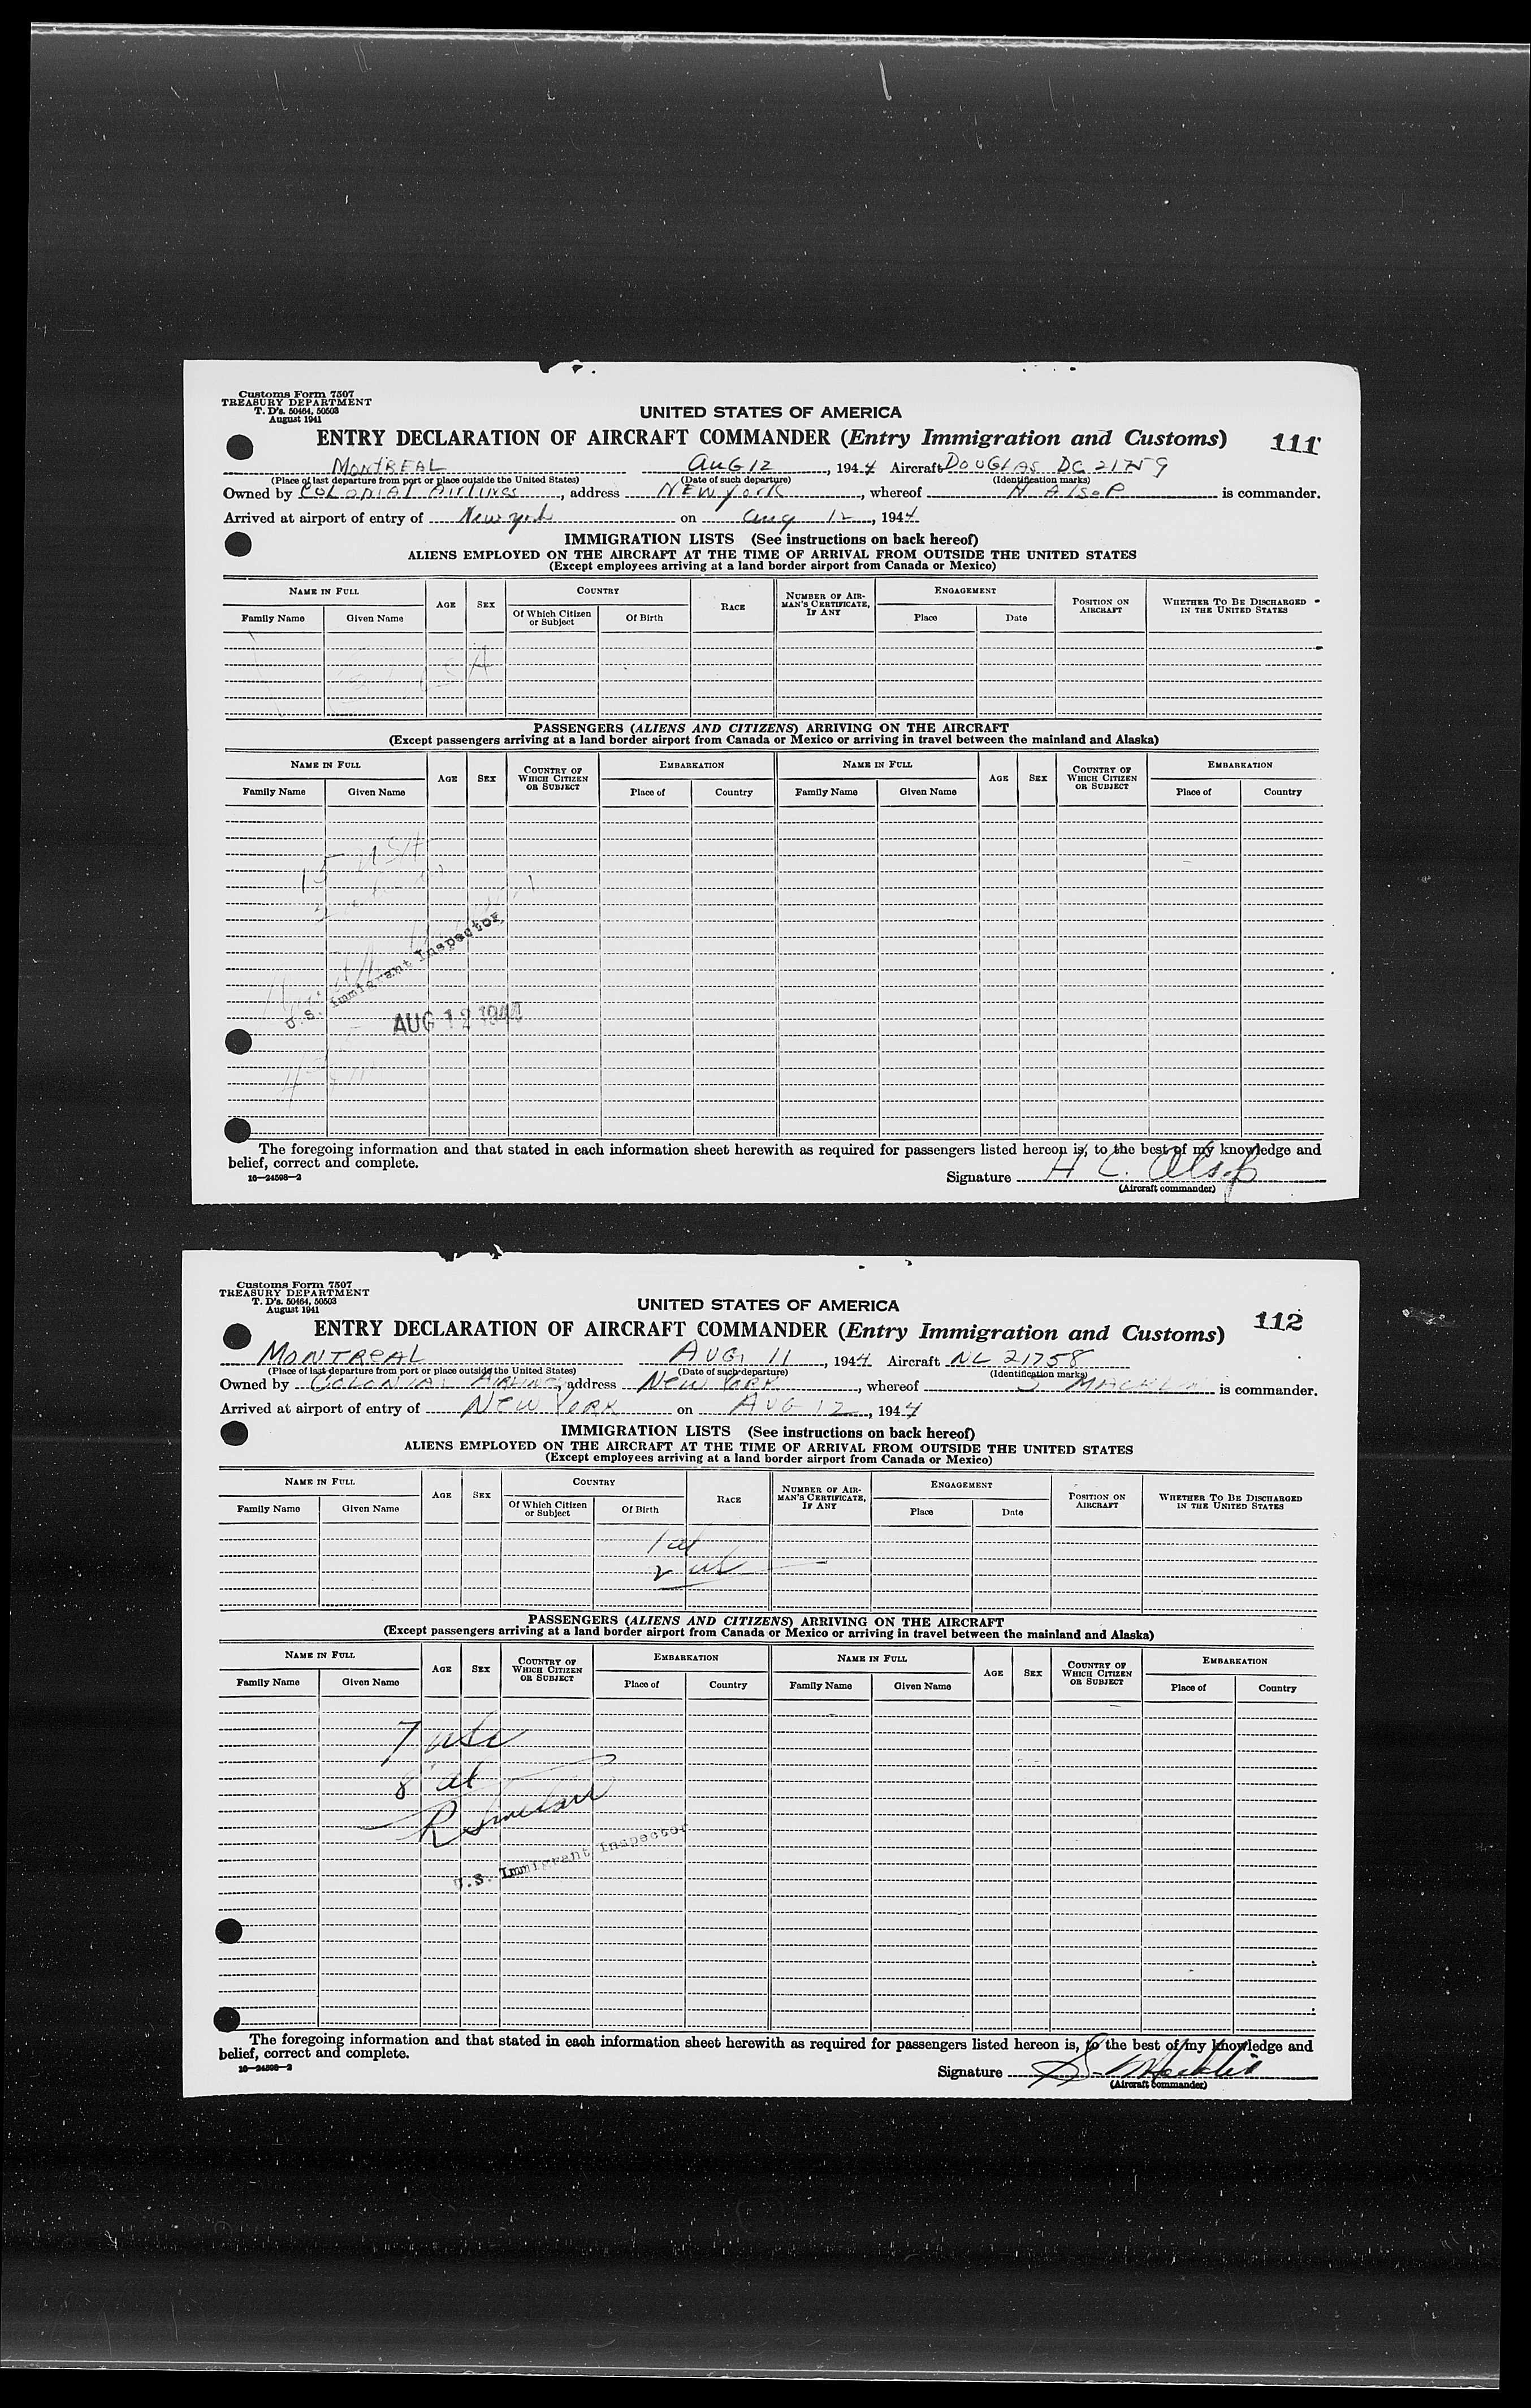 Customs Form 7507
TREASURY DEPARTMENT
T. D's. 50464, 50503
August 1941
UNITED STATES OF AMERICA
ENTRY DECLARATION OF AIRCRAFT COMMANDER (Entry Immigration and Customs)
111
MONTREAL AUG 12, 1944 Aircraft DOUGLAS DC 21759
(Place of last departure from port or place outside the United States) (Date of such departure) (Identification marks)
Owned by COLONIAL AIRLINES, address NEW YORK, whereof H Alsop is commander.
Arrived at airport of entry of New York on Aug 12, 1944
IMMIGRATION LISTS (See instructions on back hereof)
ALIENS EMPLOYED ON THE AIRCRAFT AT THE TIME OF ARRIVAL FROM OUTSIDE THE UNITED STATES
(Except employees arriving at a land border airport from Canada or Mexico)
NAME IN FULL AGE SEX COUNTRY RACE NUMBER OF AIRMAN'S CERTIFICATE, IF ANY ENGAGEMENT POSITION ON AIRCRAFT WHETHER TO BE DISCHARGED IN THE UNITED STATES
Family Name Given Name Of Which Citizen or Subject Of Birth Place Date
USA
PASSENGERS (ALIENS AND CITIZENS) ARRIVING ON THE AIRCRAFT
(Except passengers arriving at a land border airport from Canada or Mexico or arriving in travel between the mainland and Alaska)
NAME IN FULL AGE SEX COUNTRY OF WHICH CITIZEN OR SUBJECT EMBARKATION NAME IN FULL AGE SEX COUNTRY OF WHICH CITIZEN OR SUBJECT EMBARKATION
Family Name Given Name Place of Country Family Name Given Name Place of Country
15 USA
U.S. Immigrant Inspector
AUG 12 1944
The foregoing information and that stated in each information sheet herewith as required for passengers listed hereon is, to the best of my knowledge and
belief, correct and complete.
16—24598-2
Signature H C. Alsop
(Aircraft commander)
Customs Form 7507
TREASURY DEPARTMENT
T. D's. 50464, 50503
August 1941
UNITED STATES OF AMERICA
ENTRY DECLARATION OF AIRCRAFT COMMANDER (Entry Immigration and Customs)
112
MONTREAL AUG 11, 1944 Aircraft NC 21758
(Place of last departure from port or place outside the United States) (Date of such departure) (Identification marks)
Owned by COLONIAL AIRLINES, address NEW YORK, whereof S MACKLIN is commander.
Arrived at airport of entry of NEW YORK on AUG 12, 1944
IMMIGRATION LISTS (See instructions on back hereof)
ALIENS EMPLOYED ON THE AIRCRAFT AT THE TIME OF ARRIVAL FROM OUTSIDE THE UNITED STATES
(Except employees arriving at a land border airport from Canada or Mexico)
NAME IN FULL AGE SEX COUNTRY RACE NUMBER OF AIRMAN'S CERTIFICATE, IF ANY ENGAGEMENT POSITION ON AIRCRAFT WHETHER TO BE DISCHARGED IN THE UNITED STATES
Family Name Given Name Of Which Citizen or Subject Of Birth Place Date
1
2
PASSENGERS (ALIENS AND CITIZENS) ARRIVING ON THE AIRCRAFT
(Except passengers arriving at a land border airport from Canada or Mexico or arriving in travel between the mainland and Alaska)
NAME IN FULL AGE SEX COUNTRY OF WHICH CITIZEN OR SUBJECT EMBARKATION NAME IN FULL AGE SEX COUNTRY OF WHICH CITIZEN OR SUBJECT EMBARKATION
Family Name Given Name Place of Country Family Name Given Name Place of Country
7
8
R Sinclair
U.S. Immigrant Inspector
The foregoing information and that stated in each information sheet herewith as required for passengers listed hereon is, to the best of my knowledge and
belief, correct and complete.
16—24598-2
Signature S. Macklin
(Aircraft commander)